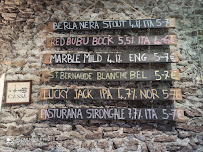 BERLA NERA STOUT 4.0 ITA 5-7€
RED BUBU BOCK 5,5% ITA 4-6€
MARBLE MILD 4.0% ENG 5-7€
ST. BERNADUS BLANCHE BEL 5-7€
LUCKY JACK IPA 4,7% NOR 5-7€
PASTURANA STRONGALE 7.7% ITA 5-7€
CASSE